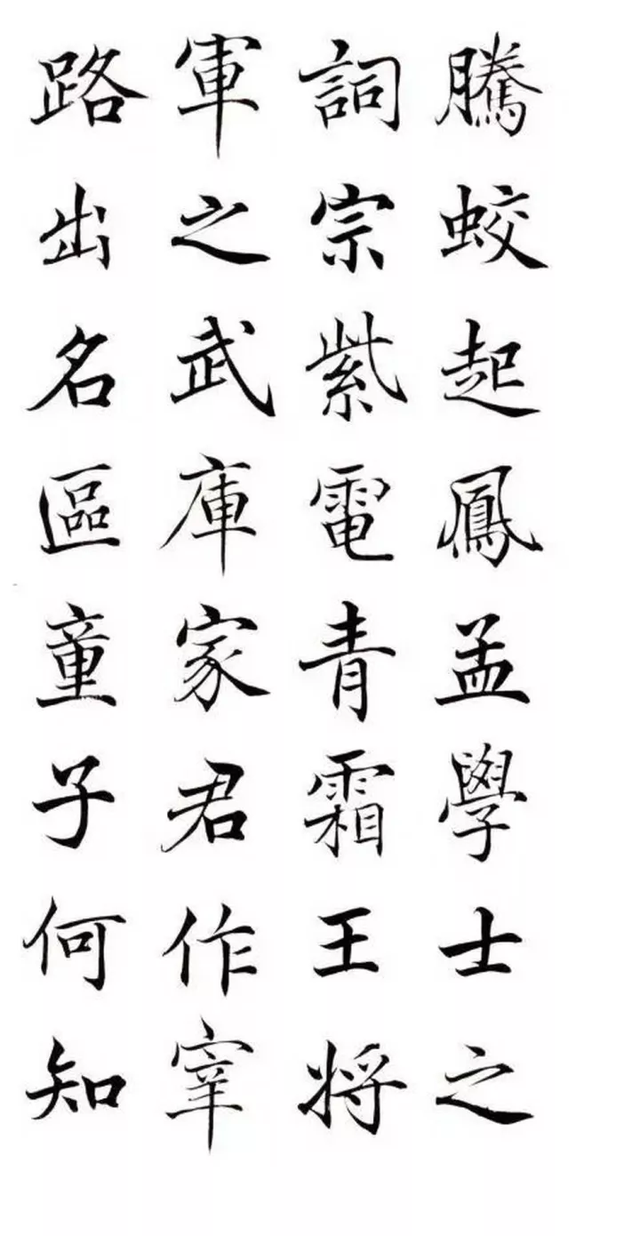 騰蛟起鳳孟學士之
詞宗紫電青霜王将
軍之武庫家君作宰
路出名區童子何知